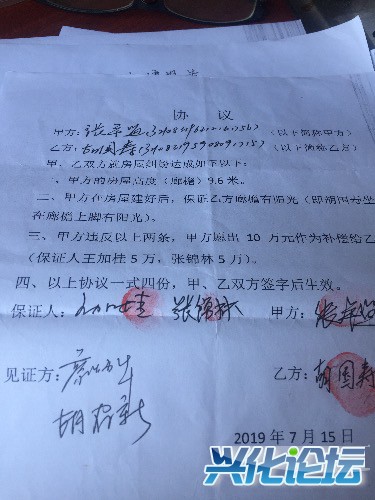 协 议
甲方：张（以下简称甲方）
乙方：胡国寿（以下简称乙方）
甲、乙双方就房屋纠纷达成如下以上：
一、甲方的房屋高度（廊檐）9.6 米。
二、甲方在房屋建好后，保证乙方廊檐有阳光（即胡国寿坐
在廊檐上脚有阳光）。
三、甲方违反以上两条，甲方愿出 10 万元作为补偿给乙
（保证人王加桂 5 万，张锦林 5 万）。
四、以上协议一式四份，甲、乙双方签字后生效。
保证人：王加桂 张锦林 甲方：张
见证方：
乙方：胡国寿
2019 年 7 月 15 日
兴化论坛